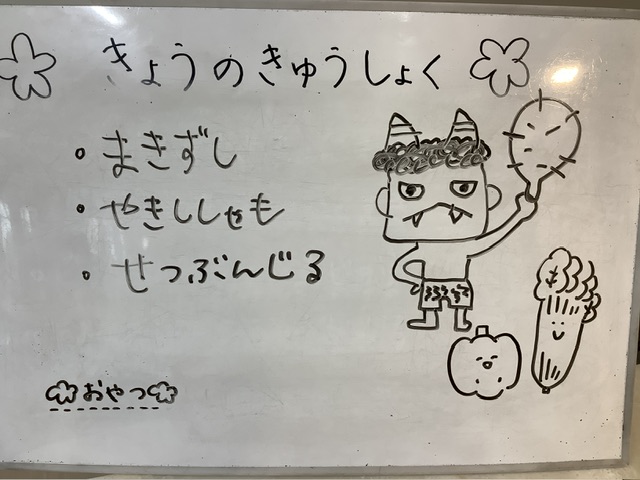 きょうのきゅうしょく
・まきずし
・やきししゃも
・せつぶんじる
おやつ